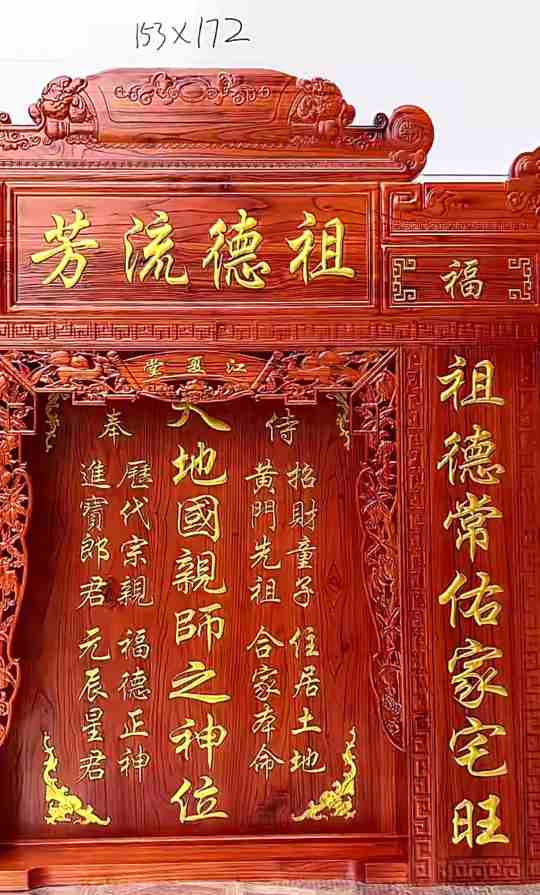 153×172
祖德流芳
福
江夏堂
祖德常佑家宅旺
侍
招財童子 住居土地
黃門先祖 合家本命
天地國親師之神位
奉
歷代宗親 福德正神
進寶郎君 元辰星君